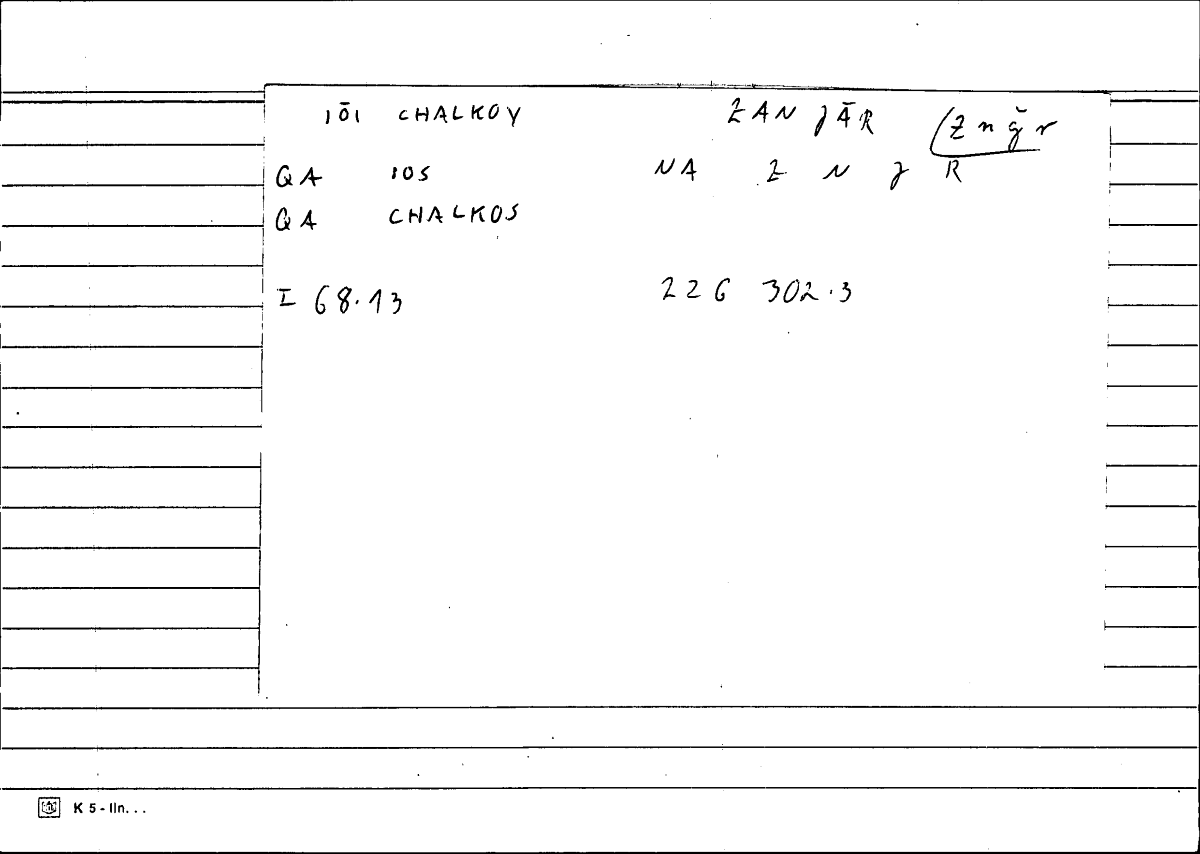 IŌI CHALKOY ZANJĀR (Znǧr
QA IOS NA Z N J R
QA CHALKOS
I 68.13 226 302.3
K 5 - IIn. . .